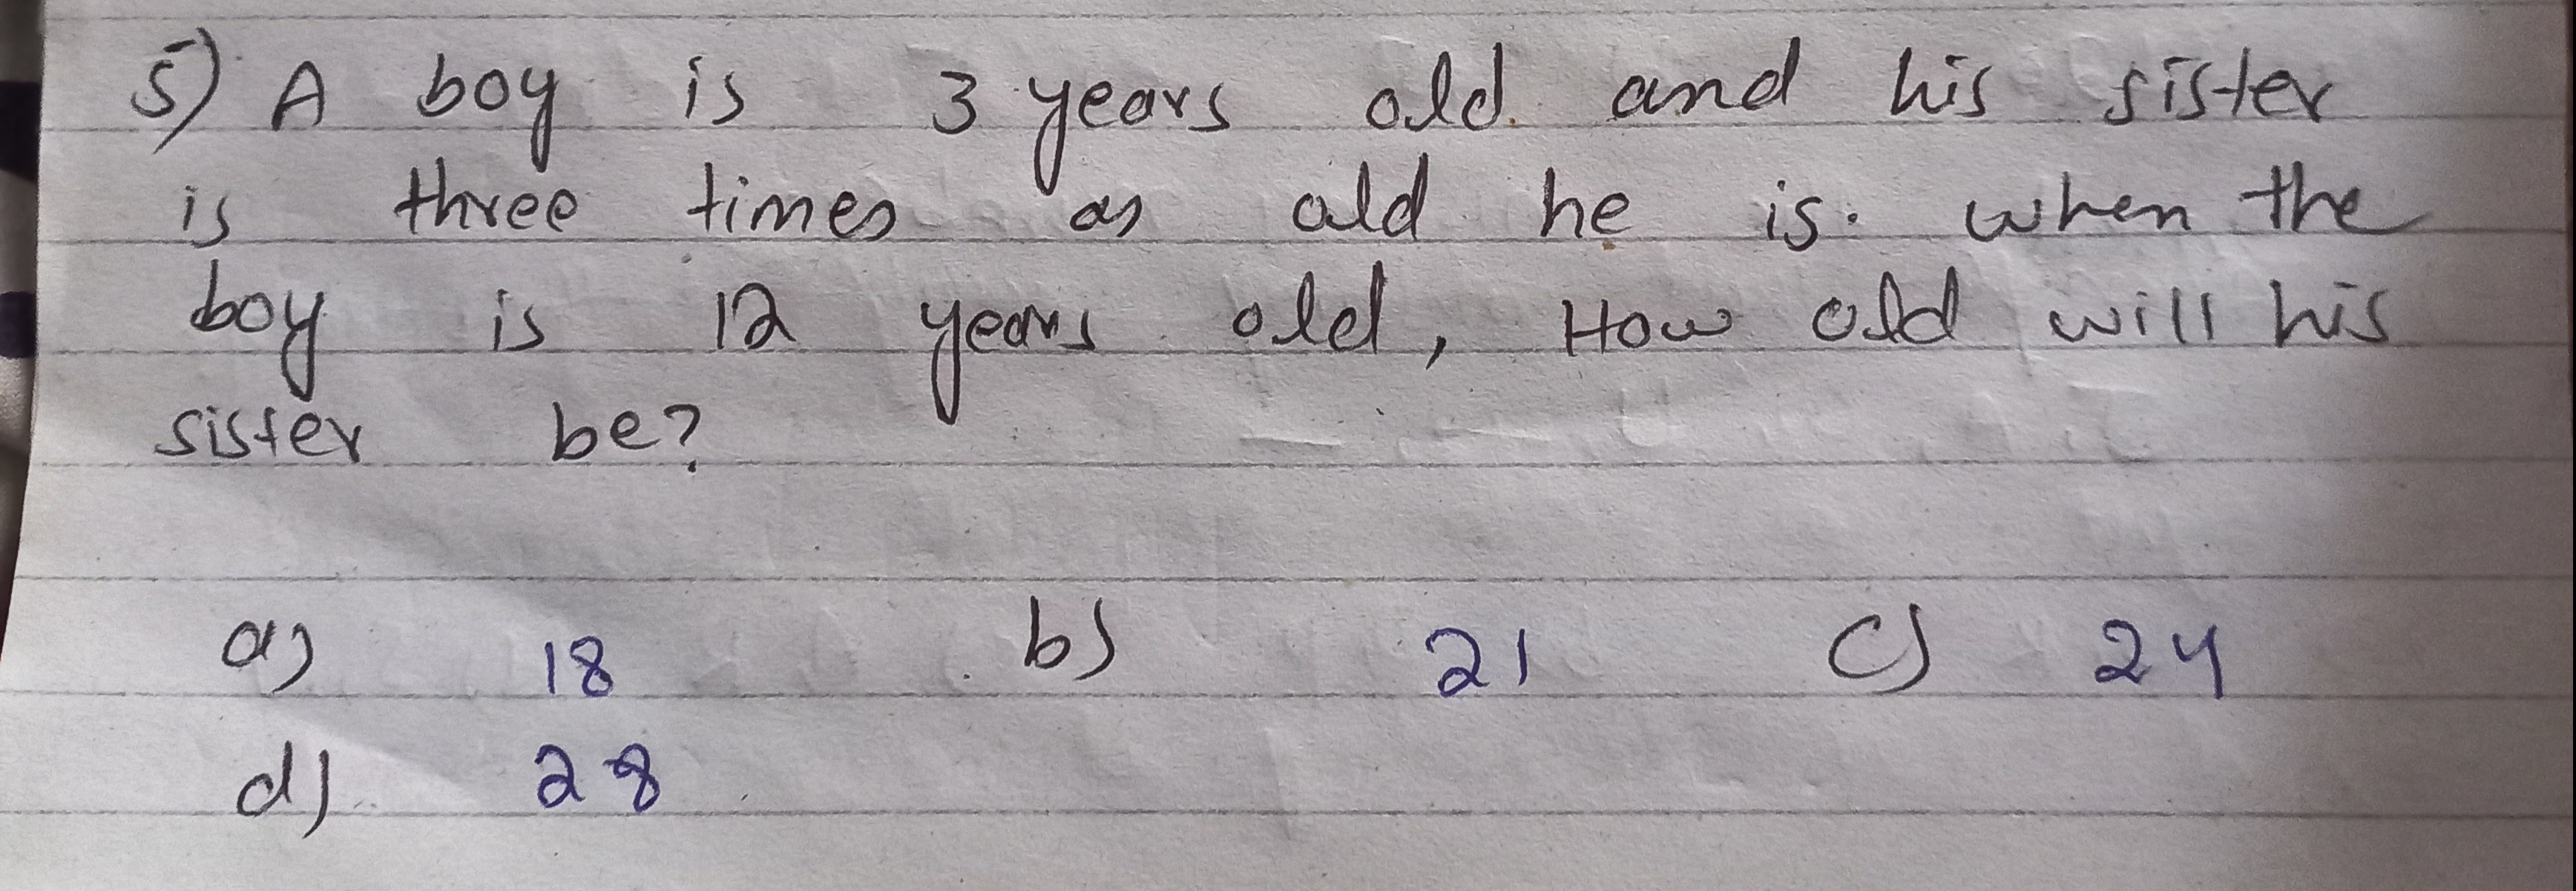 5) A boy is 3 years old. and his sister
is three times as old he is. when the
boy is 12 years old, How old will his
sister be?
a) 18 b) 21 c) 24
d) 28